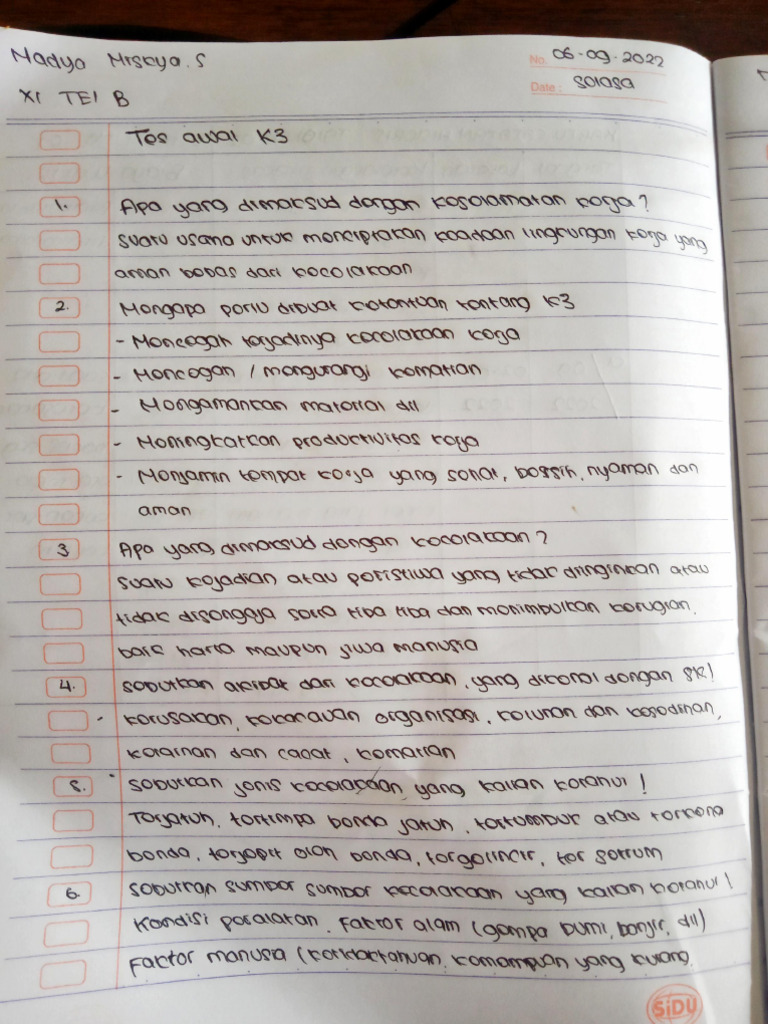 Nadya Mrsya.S
No. 06-09-2022
XI TEI B
Date: Selasa
Tes awal K3
1. Apa yang dimaksud dengan keselamatan kerja?
suatu usaha untuk menciptakan keadaan lingkungan kerja yang
aman bebas dari kecelakaan
2. Mengapa perlu dibuat ketentuan tentang K3
- Mencegah terjadinya kecelakaan kerja
- Mencegah / mengurangi kematian
- Mengamankan material dll
- Meningkatkan productivitas kerja
- Menjamin tempat kerja yang sehat, bersih, nyaman dan
aman
3 Apa yang dimaksud dengan kecelakaan?
suatu kejadian atau peristiwa yang tidak diinginkan atau
tidak disengaja serta tiba tiba dan menimbulkan kerugian.
baik harta maupun jiwa manusia
4. sebutkan akibat dari kecelakaan, yang dikenal dengan 5K!
- kerusakan, kekacauan organisasi, keluhan dan kesedihan,
kelainan dan cacat, kematian
5. sebutkan jenis kecelakaan yang kalian ketahui!
Terjatuh, tertimpa benda jatuh, tertumbuk atau terkena
benda, terjepit oleh benda, tergelincir, ter setrum
6. sebutkan sumber sumber kecelakaan yang kalian ketahui!
Kondisi peralatan, faktor alam (gempa bumi, banjir, dll)
faktor manusia (ketidaktahuan, kemampuan yang kurang,
SiDU